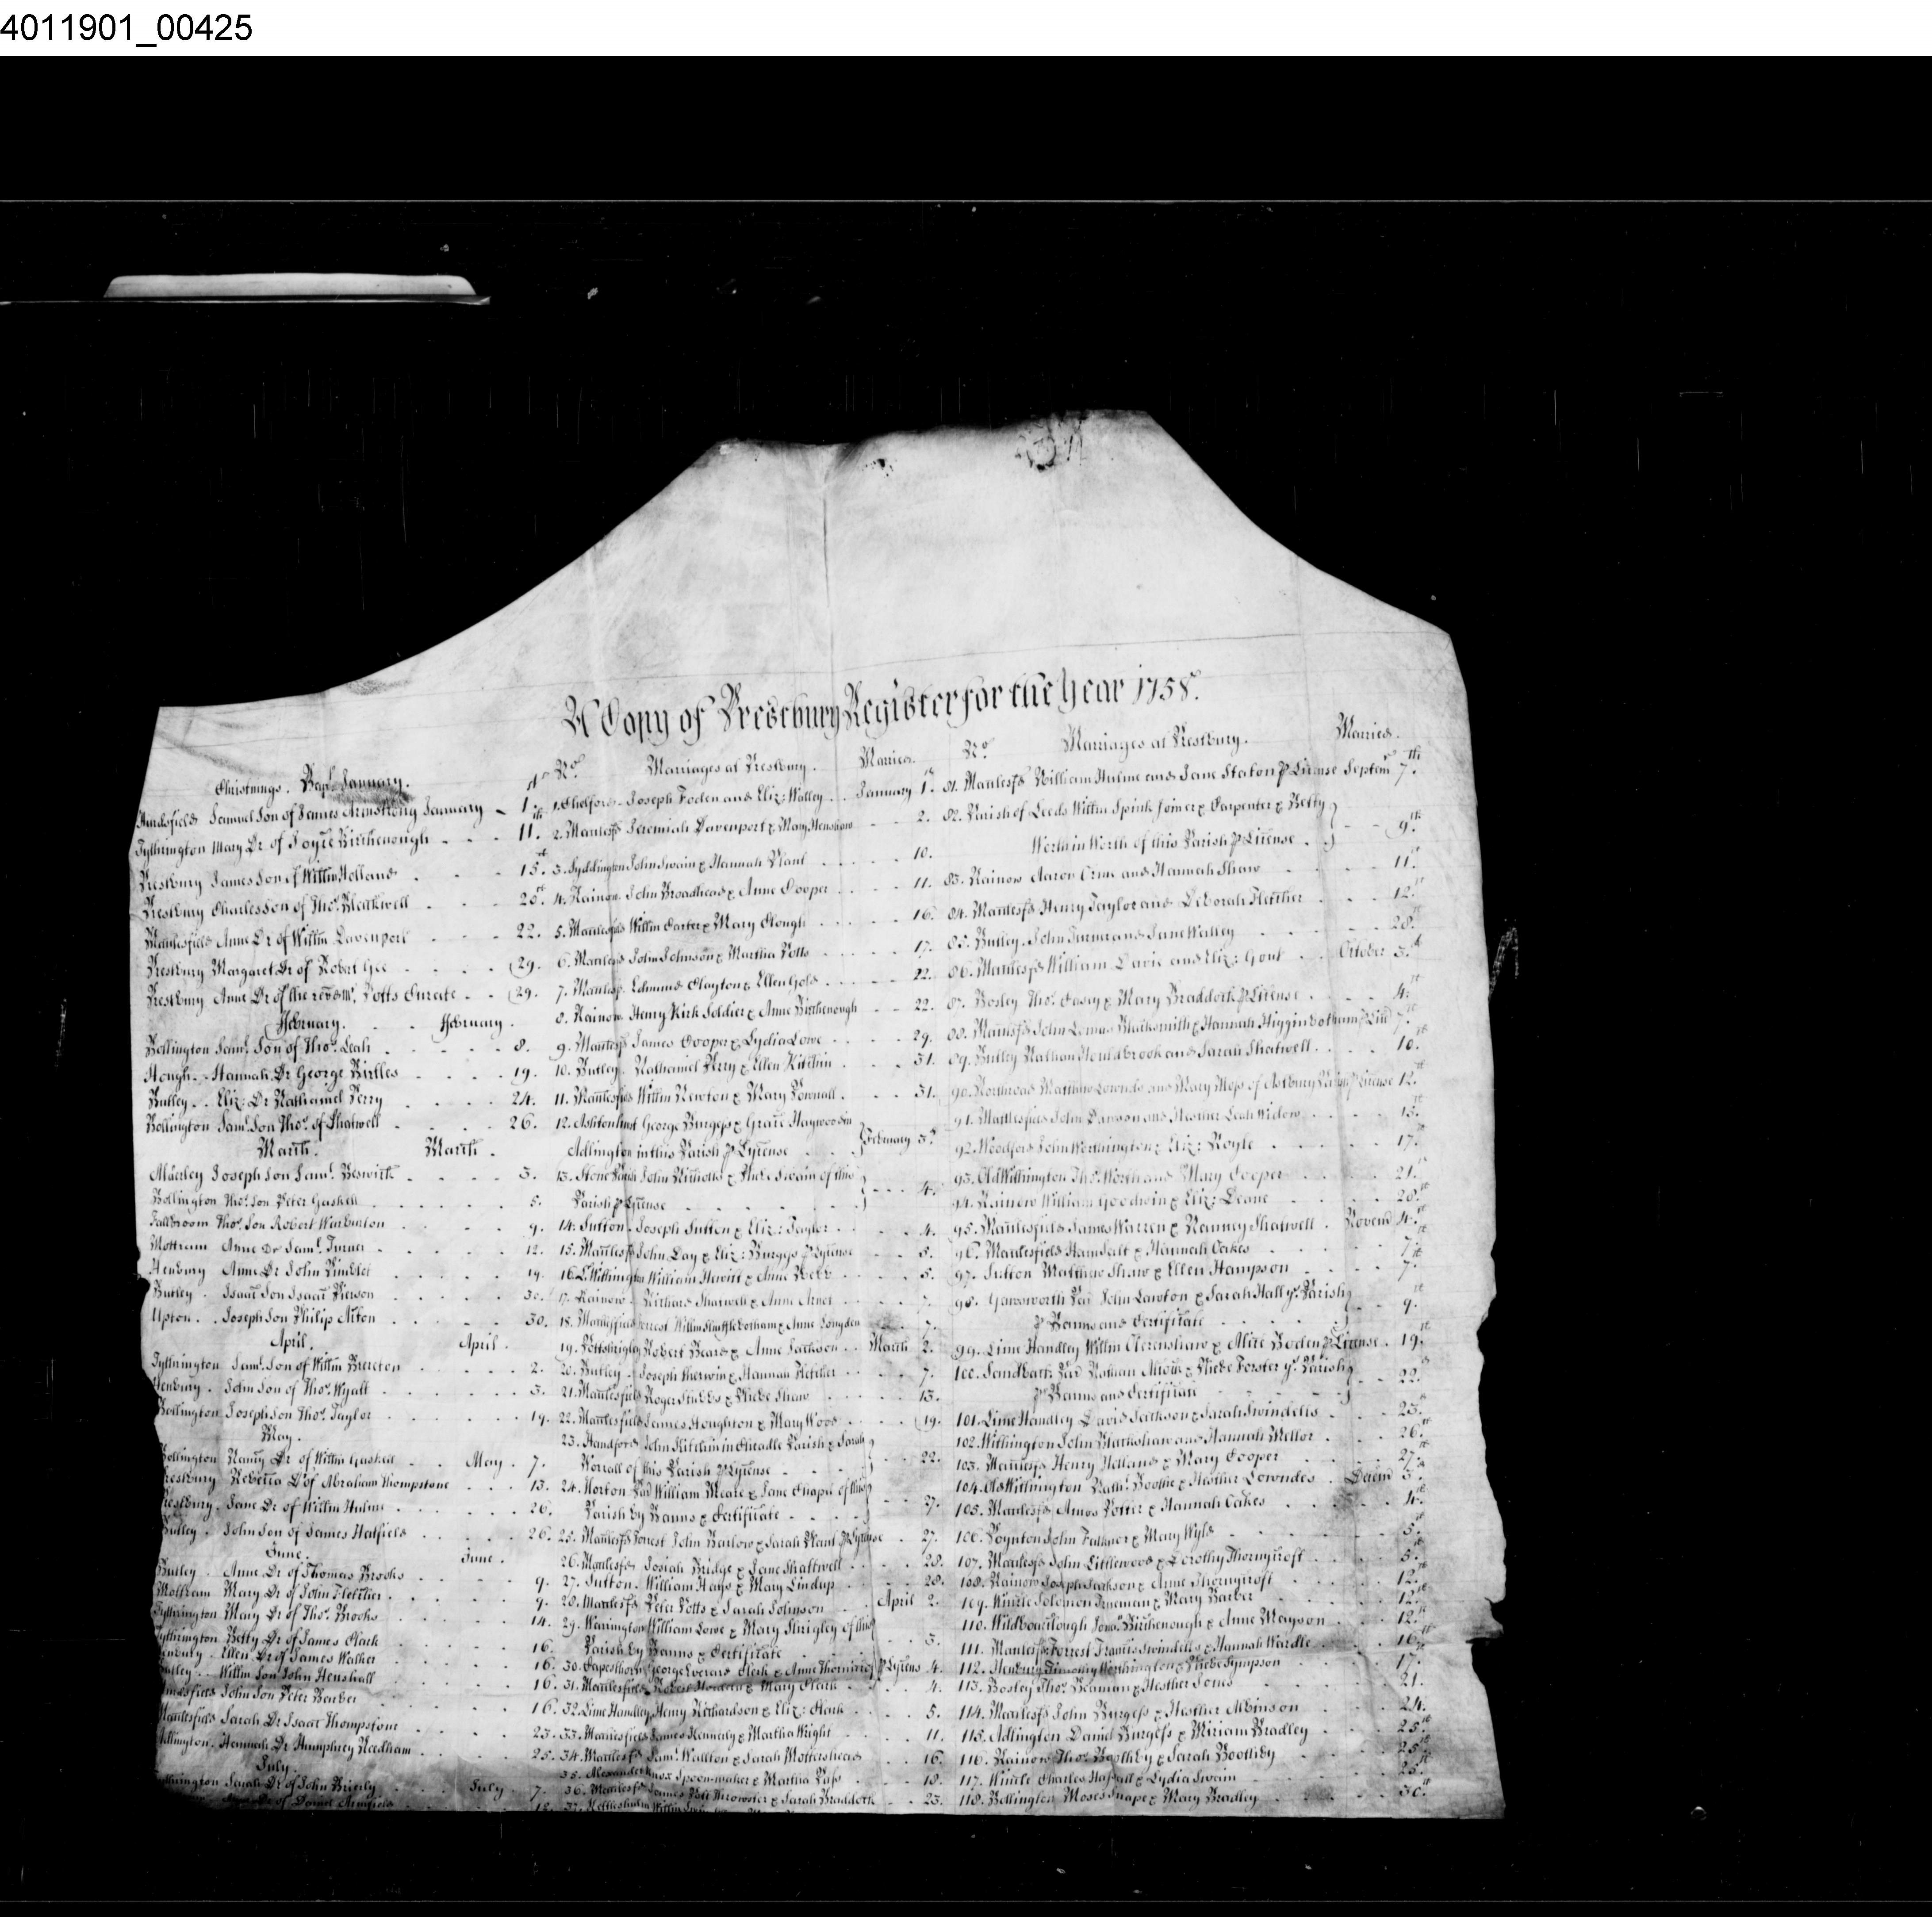 4011901_00425
A Copy of Prestbury Register for the Year 1758.
Christnings. Bapt. January.
Hurdsfield Samuel Son of James Armstrong January 1st
Tytherington Mary Dr. of Joyce Birchenough 11th
Prestbury James Son of Willm Holland 15th
Prestbury Charles Son of Thos. Blackwell
Macklesfield Anne Dr of Willm Davenport 22.
Prestbury Margaret Dr of Robert Gee 29.
Prestbury Anne Dr of the revd. Mr. Potts Curate 29.
February. February.
Bollington Saml. Son of Thos. Leah 8.
Hough Hannah Dr George Birtles 19.
Butley Eliz: Dr Nathaniel Perry 24.
Bollington Saml. Son Thos. of Shatwell 26.
March. March.
Joseph Son Saml. Beswick 3.
Bollington Thos. Son Peter Gaskell 5.
Fallibroom Thos. Son Robert Warburton 9.
Mottram Anne Dr Saml. Turner 12.
Henbury Anne Dr John 19.
Butley Isaac Son Isaac Pierson 30.
Upton Joseph Son Philip 30.
April. April.
Tytherington Saml. Son of Willm Brereton 2.
Henbury John Son of Thos. Wyatt 3.
Bollington Joseph Son Thos. Taylor 19.
May.
Bollington Nancy Dr of Willm Gaskell May 7.
Prestbury Rebecca D of Abraham Thompstone 13.
Prestbury Jane Dr of Willm Hulme 26.
Butley John Son of James Hatfield 26.
June. June.
Butley Anne Dr of Thomas Brooks 9.
Mottram Mary Dr of John Fletcher 9.
Tytherington Mary Dr of Thos. Brooks 14.
Tytherington Betty Dr of James Clark 16.
Henbury Ellen Dr of James Walker 16.
Butley Willm Son John Henshall 16.
Hurdsfield John Son Peter Barber 16.
Macklesfield Sarah Dr Isaac Thompstone 23.
Adlington Hannah Dr Humphrey Needham 25.
July. July
Tytherington Sarah Dr of John Brierly 7.
Dr of Daniel
No. Marriages at Prestbury. Married.
1. Chelford Joseph Foden and Eliz: Walley January 1st
2. Macclesfd Jeremiah Davenport & Mary Henshaw 2.
3. Syddington John Swain & Hannah Plant 10.
4. Rainow John Broadhead & Anne Cooper 11.
5. Macclesfield Willm Carter & Mary Clough 16.
6. John Johnson & Martha Potts 17.
7. Edmund Clayton & Ellen Gold 22.
8. Rainow Henry Kirk Soldier & Anne Birchenough 22.
9. James Cooper & Lydia Lowe 29.
10. Butley Nathaniel Perry & Ellen Kitchin 31.
11. Willm Newton & Mary Pownall 31.
12. George Burgess & Grace Haywood in
Adlington in this Parish p Lycense February 3d
13. Stone Parish John Nicholls & Swain of this
Parish p Lycense 4.
14. Sutton Joseph Sutton & Eliz: Taylor 4.
15. John Lay & Eliz: Burgys p Lycense 5.
16. Willington William Hewitt & Anne 5.
17. Rainow Richard Shatwell & Anne 7.
18. Forrest Willm Shufflebotham & Anne Longden 7.
19. Pottshrigley Robert Beard & Anne Jackson March 2.
20. Butley Joseph Sherwin & Hannah Fletcher 7.
21. Macclesfield Roger Stubbs & Phebe Shaw 13.
22. Macclesfield James Houghton & Mary Wood 19.
23. Handford John Kitchin in Cheadle Parish & Sarah
Worrall of this Parish p Lycense 22.
24. Norton Par William Meare & Jane of this
Parish by Banns & Certificate 27.
25. Forest John Barlow & Sarah Plant p Lycense 27.
26. Josiah Bridge & Jane Shattwell 28.
27. Sutton William Hays & Mary Lindup 28.
28. Peter Potts & Sarah Johnson April 2.
29. Warrington William Lowe & Mary Shrigley of this
Parish by Banns & Certificate 3.
30. Capesthorn George Clerk & Anne p Lycens 4.
31. Macclesfield Robert & Mary Clark 4.
32. Lime Handley Henry Richardson & Eliz: Clark 5.
33. Macclesfield James Kennerly & Martha Wright 11.
34. Saml. Wallton & Sarah Mottershead 16.
35. Alexander Knox Spoon-maker & Martha 18.
36. James Throwster & Sarah Braddock 23.
37. Willm
No. Marriages at Prestbury. Married.
81. William Hulme and Jane Statom p License Septemr 7th
82. Parish of Leeds Willm Spink Joiner & Carpenter & Betty
Worth in Worth of this Parish p License 9th
83. Rainow Aaron and Hannah Shaw 11th
84. Henry Taylor and Deborah Fletcher 12th
85. Butley John Turner and Jane Walley 28th
86. William Davie and Eliz: October 3d
87. Bosley Thos. Casey & Mary Braddock p License 4th
88. John Lomas Blacksmith & Hannah Higginbotham p Lice 7th
89. Butley Nathan Mouldbrook and Sarah Shatwell 10.
90. Northroad Matthew Lownds and Mary Moss of Astbury Parish p License 12th
91. Macclesfield John Dawson and Heather Leah Widow 15.
92. Woodford John Worthington & Eliz: Royle 17.
93. Old Withington Thos. Worth and Mary Cooper 21.
94. Rainow William Goodwin & Eliz: Deane 28.
95. Macclesfield James Warren & Nanney Shatwell Novemr 4.
96. Macclesfield & Hannah Oakes 7.
97. Sutton Matthew Shaw & Ellen Hampson 7.
98. Gawsworth Par John Lawton & Sarah Hall ys. Parish
p Banns and Certificate 9.
99. Lime Handley Willm Clerenshaw & Alice Boden p License 19.
100. Sandbach Par Nathan & Phebe Forster ys. Parish
p Banns and Certificate 22.
101. Lime Handley David Jackson & Sarah Swindells 23.
102. Withington John Blackshaw and Hannah Mellor 26.
103. Henry Holland & Mary Cooper 27.
104. Old Withington Nath. Boothe & Heather Lowndes Decemr 3.
105. Amos Potter & Hannah Oakes 4.
106. Poynton John & Mary Wyld 5.
107. John Littlewood & Dorothy Thornycroft 5.
108. Rainow Joseph Jackson & Anne Thornycroft 12.
109. Wincle Solomon Trueman & Mary Barber 12.
110. Wildboarclough Birchenough & Anne Mayson 12.
111. Forrest Francis Swindells & Hannah Wardle 16.
112. Henbury Timothy Worthington & Phebe Sympson 17.
113. Bosley Thos. & Hesther Jones 21.
114. John Burgess & Heather Albinson 24.
115. Adlington Daniel Burgess & Miriam Bradley 25.
116. Rainow Thos. Boothby & Sarah Boothby 25.
117. Wincle Charles & Lydia Swain
118. Bollington Moses Snape & Mary Bradley 30.